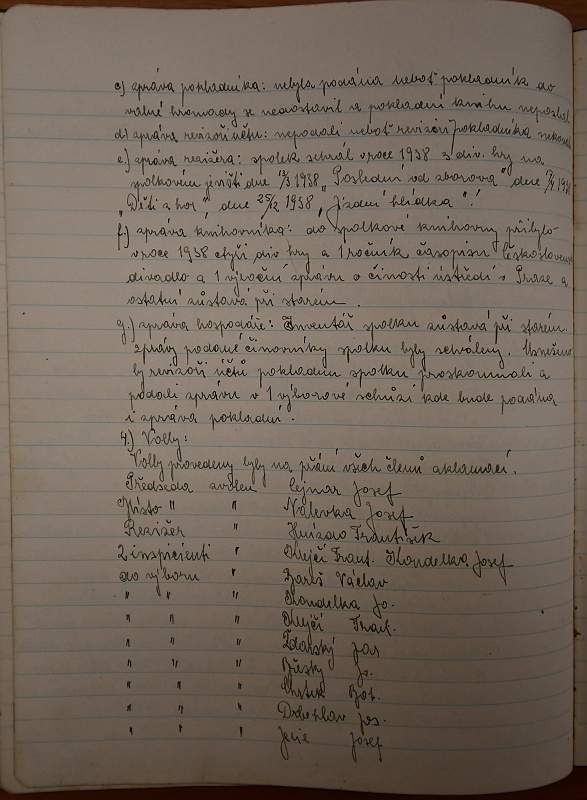 c) zpráva pokladníka: nebyla podána neboť pokladník do
valné hromady se nedostavil a pokladní knihu neposlal
d) zpráva revizorů účtů: nepodali neboť revizoři pokladníka
e.) zpráva režiséra: spolek sehrál v roce 1938 3 div. hry na
spolkovém jevišti dne 13/3 1938 „Poslední od Zborova" dne
„Děti z hor", dne 25/12 1938 „Jízdní hlídka".
f.) zpráva knihovníka: do spolkové knihovny přibylo
v roce 1938 čtyři div hry a 1 ročník časopisu
divadlo a 1 výroční zprávu o činosti ústředí v Praze a
ostatní zůstává při starém.
g.) zpráva hospodáře: Inventář spolku zůstává při starém.
Zprávy podané činovníky spolku byly schváleny. Usneseno
by revizoři účtů pokladnu spolku proskoumali a
podali zprávu v 1 výborové schůzi kde bude podána
i zpráva pokladní.
4.) Volby:
Volby provedeny byly na přání všech členů aklamací.
Předseda zvolen Cejnar Josef
Místo " " Nálevka Josef
Režižer " František
2 inspicienti " Krejčí Frant. Kondelka Josef
do výboru " Bareš Václav
" " " Kondelka Jo.
" " " Krejčí Frant.
" " " Žďárský Jar
" " " Břesky Js.
" " "
" " " Jos.
" " " Josef